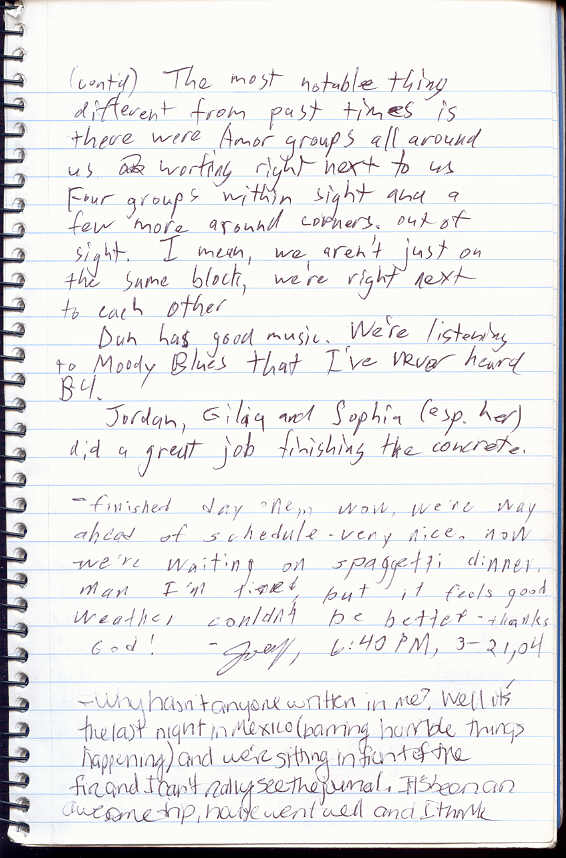 (cont'd) The most notable thing
different from past times is
there were Amor groups all around
us working right next to us
Four groups within sight and a
few more around corners. out of
sight. I mean, we aren't just on
the same block, we're right next
to each other
Dan has good music. We're listening
to Moody Blues that I've never heard
B4.
Jordan, and Sophia (esp. her)
did a great job finishing the concrete.
-finished day one,,, wow, we're way
ahead of schedule - very nice. now
we're waiting on spagetti dinner.
man I'm tired, but it feels good
weather couldn't be better - thanks
God! - 6:40 PM, 3-21,04
-Why hasn't anyone written in me? Well it's
the last night in Mexico (barring horrible things
happening) and we're sitting in front of the
fire and I can't really see the journal. It's been an
awesome trip, house went well and I think